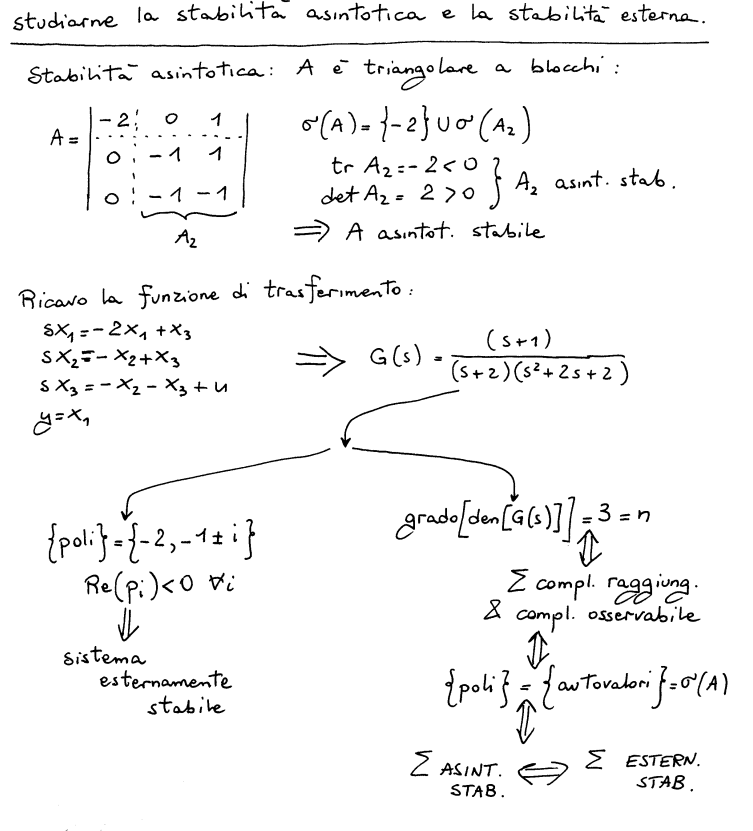 studiarne la stabilità asintotica e la stabilità esterna.
Stabilità asintotica: A è triangolare a blocchi:
A = | -2 0 1 |
| 0 -1 1 |
| 0 -1 -1 |
A₂
σ(A) = {-2} ∪ σ(A₂)
tr A₂ = -2 < 0
det A₂ = 2 > 0 } A₂ asint. stab.
⇒ A asintot. stabile
Ricavo la funzione di trasferimento:
sx₁ = -2x₁ + x₃
sx₂ = -x₂ + x₃
sx₃ = -x₂ - x₃ + u
y = x₁
⇒ G(s) = (s+1) / (s+2)(s²+2s+2)
{poli} = {-2, -1 ± i}
Re(pᵢ) < 0 ∀i
⇓
sistema
esternamente
stabile
grado[den[G(s)]] = 3 = n
⇕
Σ compl. raggiung.
& compl. osservabile
⇕
{poli} = {autovalori} = σ(A)
⇕
Σ ASINT. STAB. ⇔ Σ ESTERN. STAB.